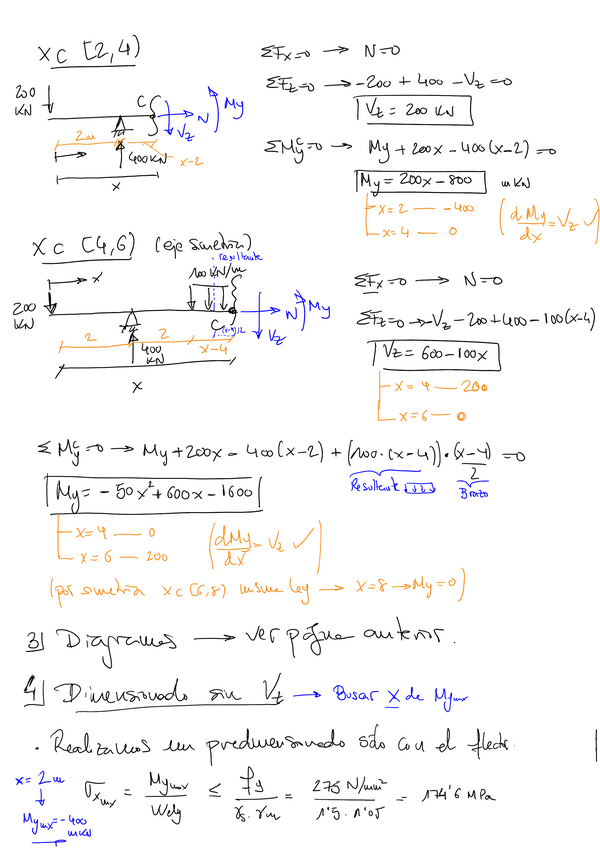 x ⊂ [2,4)
ΣFx=0 → N=0
200 KN
C
N
My
Vz
2m
400KN
x-2
x
ΣFz=0 → -200 + 400 - Vz = 0
Vz = 200 KN
ΣMyᶜ=0 → My + 200x - 400(x-2) = 0
My = 200x - 800 mKN
x=2 — -400
x=4 — 0
(dMy/dx = Vz ✓
x ⊂ [4,6) (eje simetría)
resultante
100 KN/m
x
200 KN
C
N
My
Vz
2
2
x-4
(x-4)/2
400 KN
x
ΣFx=0 → N=0
ΣFz=0 → -Vz - 200 + 400 - 100(x-4)
Vz = 600 - 100x
x = 4 — 200
x = 6 — 0
ΣMyᶜ=0 → My + 200x - 400(x-2) + (100·(x-4))·(x-4)/2 = 0
Resultante
Brazo
My = -50x² + 600x - 1600
x=4 — 0
x=6 — 200
(dMy/dx = Vz ✓)
(por simetría x ⊂ [6,8) misma ley → x=8 → My=0)
3) Diagramas → ver página anterior.
4) Dimensionado sin Vz → Buscar x de Mymx
· Realizamos un predimensionado sólo con el flector.
x = 2m
↓
Mymx = -400 mKN
σxmx = Mymax/Wely ≤ fy/(γs·γm) = 275 N/mm²/(1'5·1'05) = 174'6 MPa